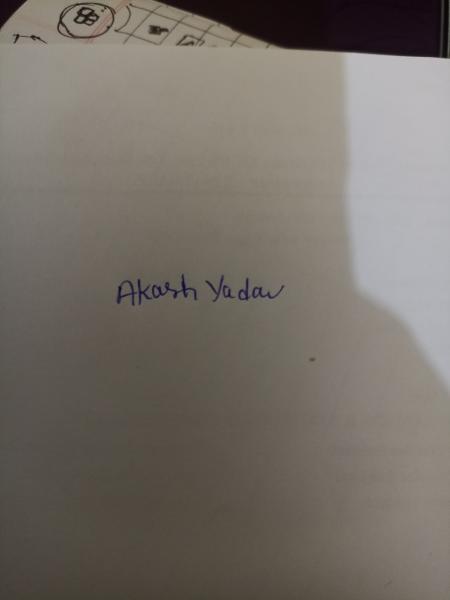 Akash Yadav